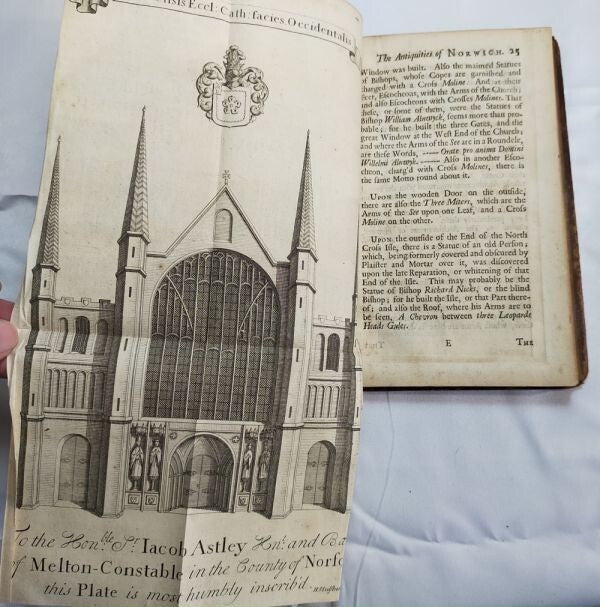 ensis Eccl: Cath: facies Occidentalis
To the Hon.ble Sr. Iacob Astley Knt. and Ba
of Melton-Constable in the County of Norfo
this Plate is most humbly inscrib'd.
The Antiquities of NORWICH. 25
Window was built. Also the maimed Statues
of Bishops, whose Copes are garnished and
charged with a Cross Moline. And at their
Feet, Escocheons, with the Arms of the Church;
and also Escocheons with Crosses Moline. That
these, or some of them, were the Statues of
Bishop William Alnwyck, seems more than pro-
bable; for he built the three Gates, and the
great Window at the West End of the Church;
and where the Arms of the See are in a Roundele,
are these Words, —— Orate pro anima Domini
Willelmi Alnwyk. —— Also in another Esco-
cheon, charg'd with Cross Molines, there is
the same Motto round about it.
UPON the wooden Door on the outside,
there are also the Three Miters, which are the
Arms of the See upon one Leaf, and a Cross
Moline on the other.
UPON the outside of the End of the North
Cross Isle, there is a Statue of an old Person;
which, being formerly covered and obscured by
Plaister and Mortar over it, was discovered
upon the late Reparation, or whitening of that
End of the Isle. This may probably be the
Statue of Bishop Richard Nicks, or the blind
Bishop; for he built the Isle, or that Part there-
of; and also the Roof, where his Arms are to
be seen, A Chevron between three Leopards
Heads Gules.
E THE